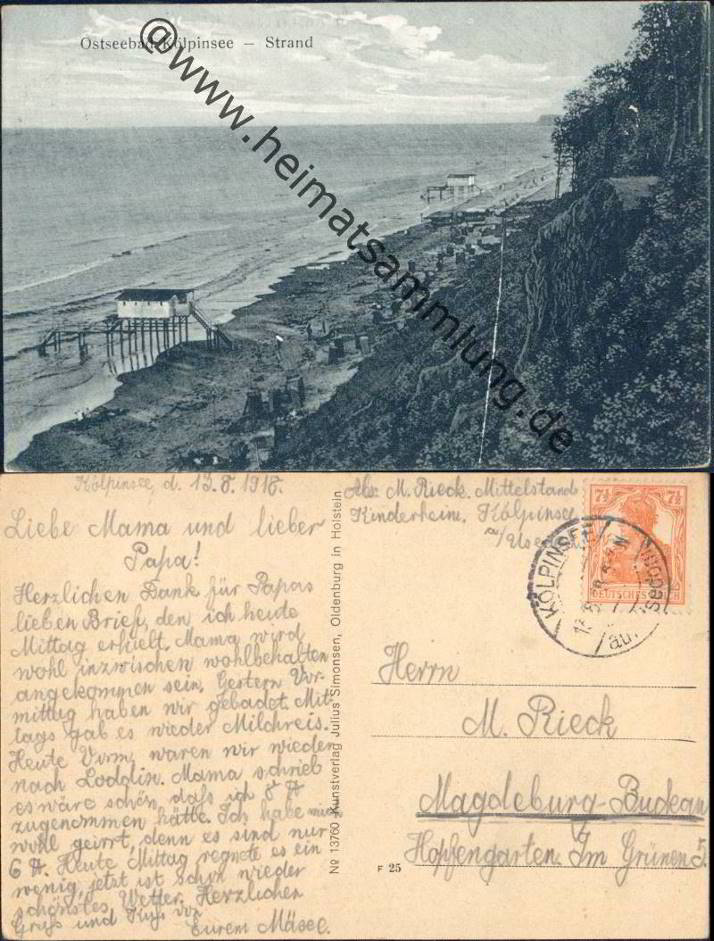 Ostseebad Kölpinsee – Strand
@www.heimatsammlung.de
Kölpinsee, d. 13.8.1918.
Liebe Mama und lieber
Papa!
Herzlichen Dank für Papas
lieben Brief, den ich heute
Mittag erhielt. Mama wird
wohl inzwischen wohlbehalten
angekommen sein. Gestern Vor-
mittag haben wir gebadet. Mit-
tags gab es wieder Milchreis.
Heute Vorm. waren wir wieder
nach Loddin. Mama schrieb
es wäre schön, dass ich 8 ℔
zugenommen hätte. Ich habe mich
wohl geirrt, denn es sind nur
6 ℔. Heute Mittag regnete es ein
wenig, jetzt ist schon wieder
schönstes Wetter. Herzlichen
Gruss und Kuss von
Eurem Mäsee.
No 13760 Kunstverlag Julius Simonsen, Oldenburg in Holstein
Abs. M. Rieck. Mittelstand
Kinderheim, Kölpinsee
a/Used
7½ 7½
DEUTSCHES REICH
KÖLPINSEE
auf Usedom
Herrn
M. Rieck
Magdeburg-Buckau
Hopfengarten. Im Grünen 5.
F 25